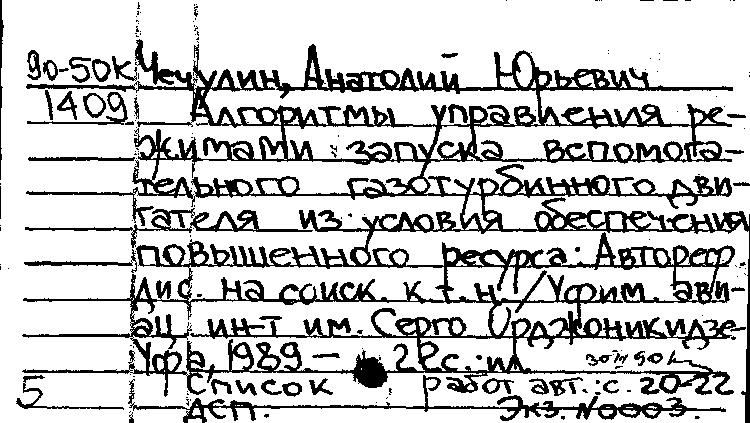 90-50К Чечулин, Анатолий Юрьевич
1409 Алгоритмы управления ре-
жимами запуска вспомога-
тельного газотурбинного дви-
гателя из условия обеспечения
повышенного ресурса: Автореф.
дис. на соиск. к.т.н. / Уфим. ави-
ац. ин-т им. Серго Орджоникидзе.-
Уфа, 1989.- 22с.:ил.
5 Список работ авт.: с. 20-22.
ДСП. Экз. N0003.